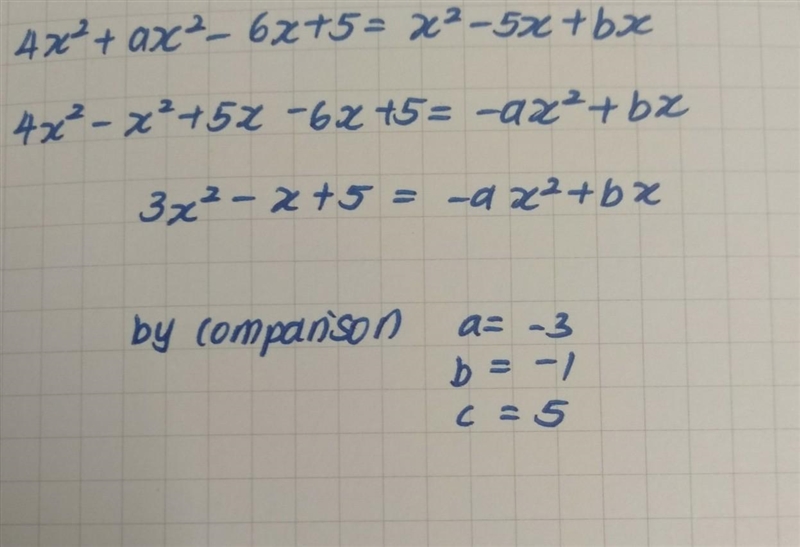 4x² + ax² - 6x + 5 = x² - 5x + bx
4x² - x² + 5x - 6x + 5 = -ax² + bx
3x² - x + 5 = -ax² + bx
by comparison a = -3
b = -1
c = 5